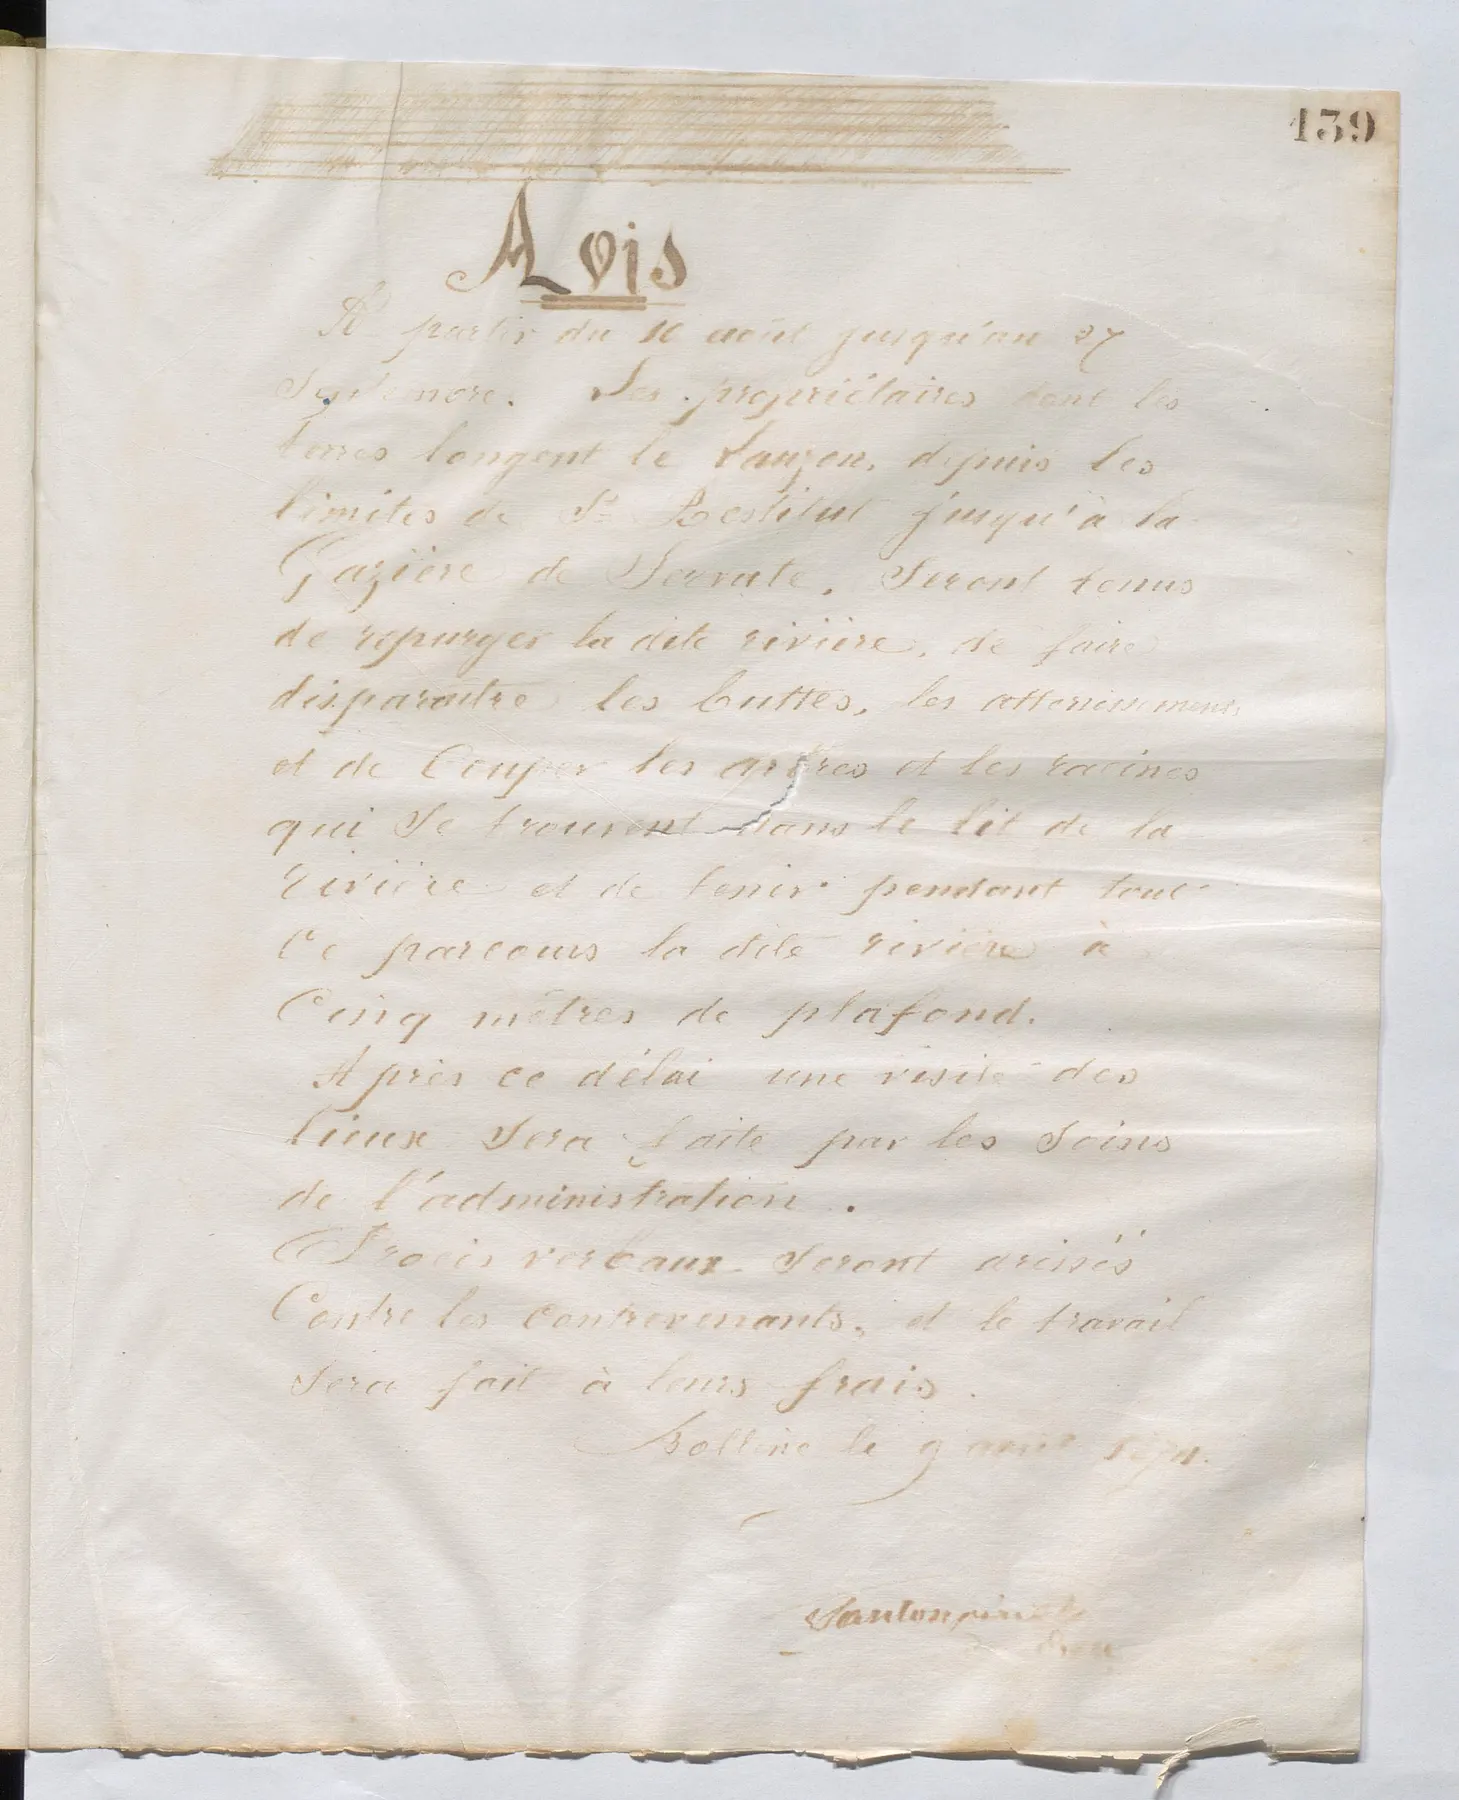 139
Avis
A partir du 10 août jusqu'au 27
Septembre. Les propriétaires dont les
terres longent le Lauzon, depuis les
limites de St Restitut jusqu'à la
Gazière de Servate, Seront tenus
de repurger la dite rivière, de faire
disparaitre les buttes, les atterrissements
et de Couper les arbres et les racines
qui Se trouvent dans le lit de la
rivière et de tenir pendant tout
Ce parcours la dite rivière à
Cinq mètres de plafond.
Après ce délai une visite des
lieux Sera faite par les Soins
de l'administration.
Procès verbaux Seront dressés
Contre les contrevenants, et le travail
Sera fait à leurs frais.
Bollène le 9 août